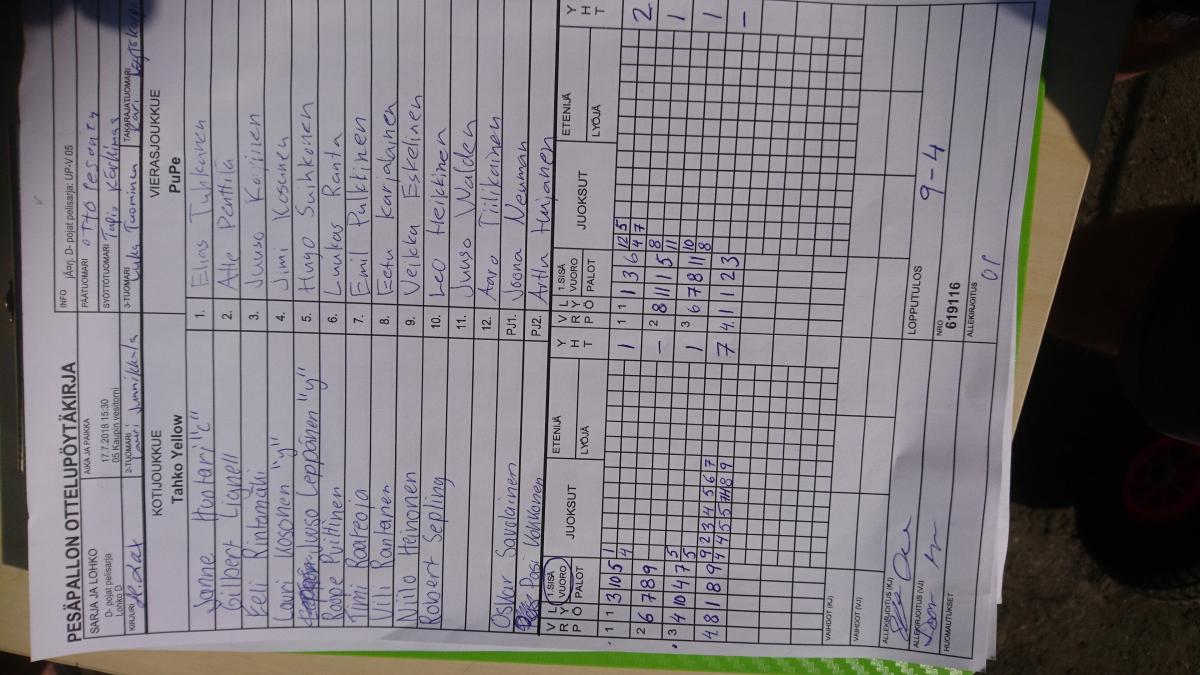 PESÄPALLON OTTELUPÖYTÄKIRJA
SARJA JA LOHKO
D- pojat pelisarja
Lohko D
AIKA JA PAIKKA
17.7.2018 15:30
05 Kaupin vesitorni
INFO jAarj. D- pojat pelisarja: UP-V 05
PÄÄTUOMARI Otto Pesonen
SYÖTTÖTUOMARI Tapio
KIRJURI
2-TUOMARI
3-TUOMARI Jouka Tuominen
TAKARAJATUOMARI Kari
KOTIJOUKKUE
Tahko Yellow
VIERASJOUKKUE
PuPe
Janne Huhtari "c" 1. Elias Tuhkanen
Gilbert Lignell 2. Atte Penttilä
Eeli Rintamäki 3. Juuso
Lauri Kosonen "y" 4. Jimi Kosonen
Juuso Leppänen "y" 5. Hugo Suihkonen
Roope Pulttinen 6. Luukas Ranta
Timi Raateoja 7. Emil Pulkkinen
Vili Rantanen 8. Eetu Karjalainen
Niilo Heinonen 9. Veikka Eskelinen
Robert Sepling 10. Leo Heikkinen
11. Juuso Walden
12. Aaro Tiilikainen
Oskar Savolainen PJ1. Joona Neuman
Pasi Kakkonen PJ2. Arttu Harjanen
V R P L Y Ö 1.SISÄ VUORO PALOT JUOKSUT ETENIJÄ LYÖJÄ Y H T
V R P L Y Ö 1.SISÄ VUORO PALOT JUOKSUT ETENIJÄ LYÖJÄ Y H T
1 1 3 10 5 1 4 1
1 1 1 3 6 12 5 4 7 2
2 6 7 8 9 –
2 8 11 1 5 8 11 1
3 4 10 4 7 5 5 1
3 6 7 8 11 10 8 1
4 8 1 8 9 9 2 3 4 5 6 7 7
4 11 1 2 3 –
VAIHDOT (KJ)
VAIHDOT (VJ)
ALLEKIRJOITUS (KJ)
ALLEKIRJOITUS (VJ)
HUOMAUTUKSET
LOPPUTULOS 9-4
NRO
619116
ALLEKIRJOITUS